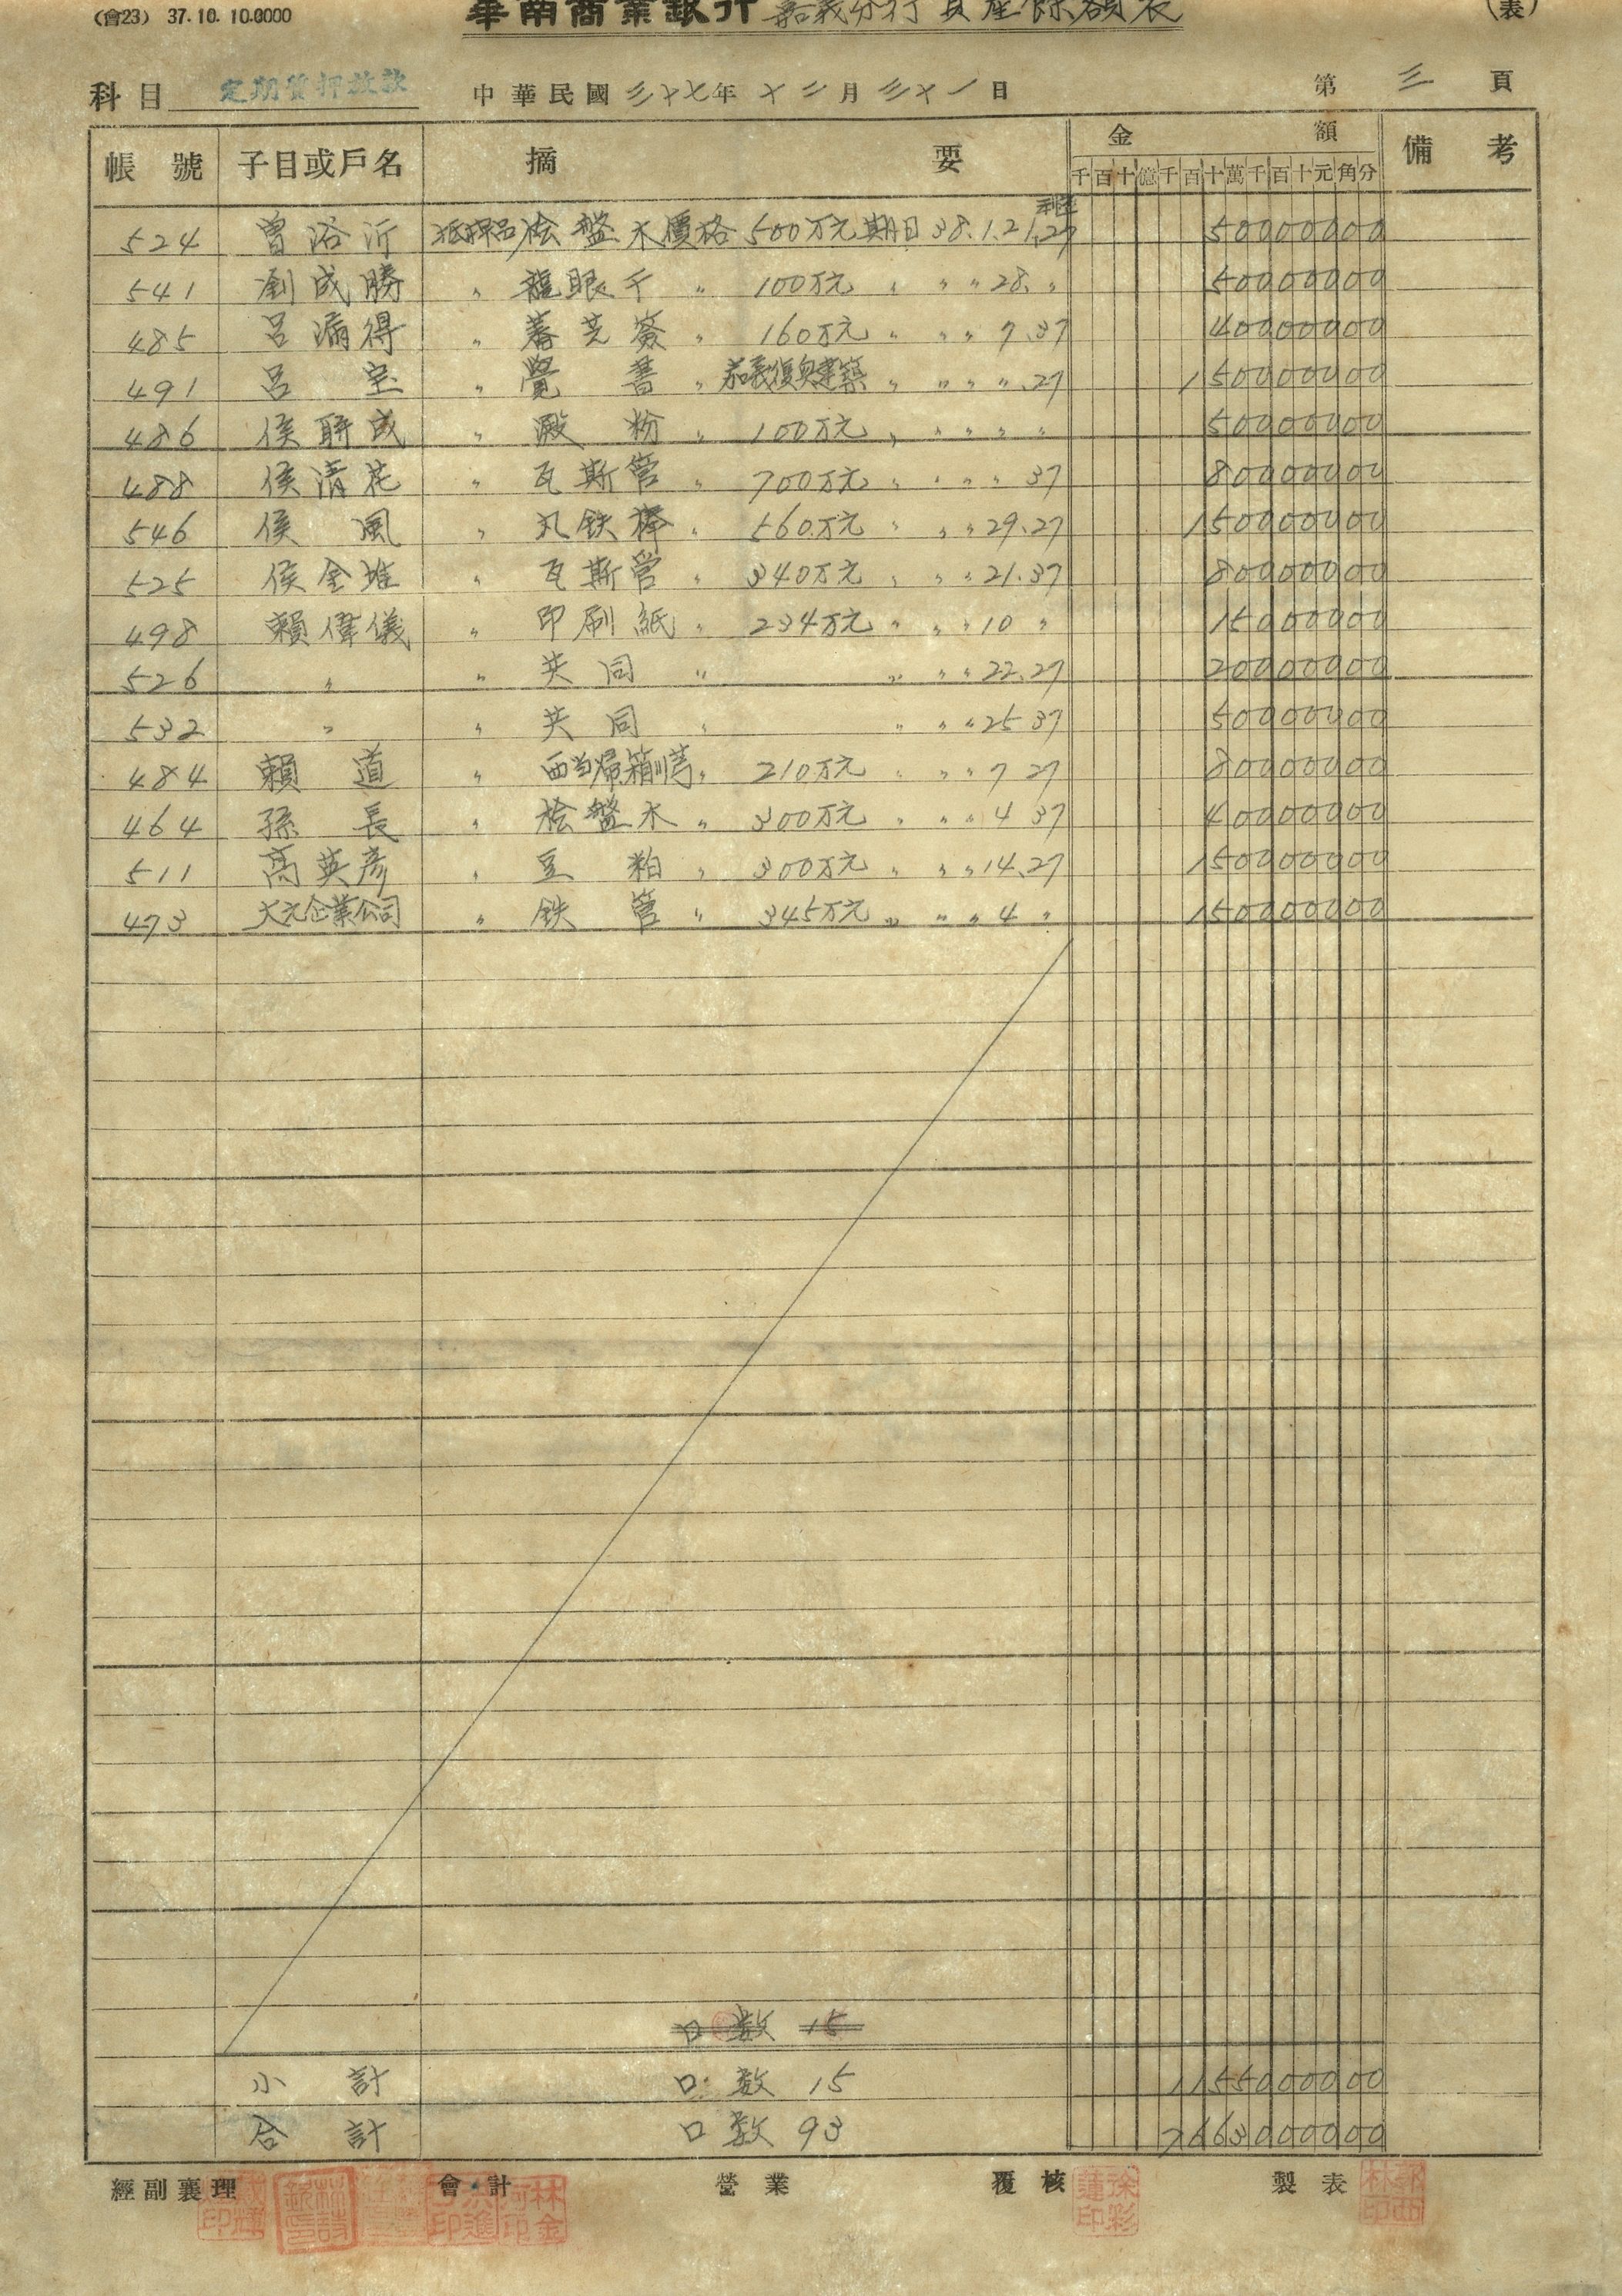 (會23) 37.10.10.0000 華南商業銀行 嘉義分行 資產餘額表 (表)
科目 定期質押放款 中華民國三十七年十二月三十一日 第三頁
帳號 子目或戶名 摘要 金額 備考
千百十億千百十萬千百十元角分
利率
524 曾浴沂 抵押品桧盤木價格500万元期日38.1.21.27 50000000
541 劉成勝 〃 龍眼干 〃 100万元 〃 〃 〃 28. 〃 50000000
485 呂滿得 〃 蕃芝簽 〃 160万元 〃 〃 〃 7.37 40000000
491 呂宝 〃 覺書 〃 嘉義復興建築 〃 〃 〃 〃.27 150000000
486 侯酧成 〃 澱粉 〃 100万元 〃 〃 〃 〃 〃 50000000
488 侯清花 〃 瓦斯管 〃 700万元 〃 〃 〃 〃 37 80000000
546 侯風 〃 丸鉄棒 〃 560万元 〃 〃 〃 29.27 150000000
525 侯金堆 〃 瓦斯管 〃 340万元 〃 〃 〃 21.37 80000000
498 賴偉儀 〃 印刷紙 〃 234万元 〃 〃 〃 10 〃 15000000
526 〃 〃 共同 〃 〃 〃 〃 22.27 20000000
532 〃 〃 共同 〃 〃 〃 〃 25 37 50000000
484 賴道 〃 西当帰箱川芎 〃 210万元 〃 〃 〃 7 27 80000000
464 孫長 〃 桧盤木 〃 300万元 〃 〃 〃 4 37 40000000
511 高英彥 〃 豆粕 〃 300万元 〃 〃 〃 14.27 150000000
473 大元企業公司 〃 鉄管 〃 345万元 〃 〃 〃 4 〃 150000000
口数 15
小計 口数 15 1155000000
合計 口数 93 7663000000
經副襄理 會計 營業 覆核 製表
林金
徐彩蓮印